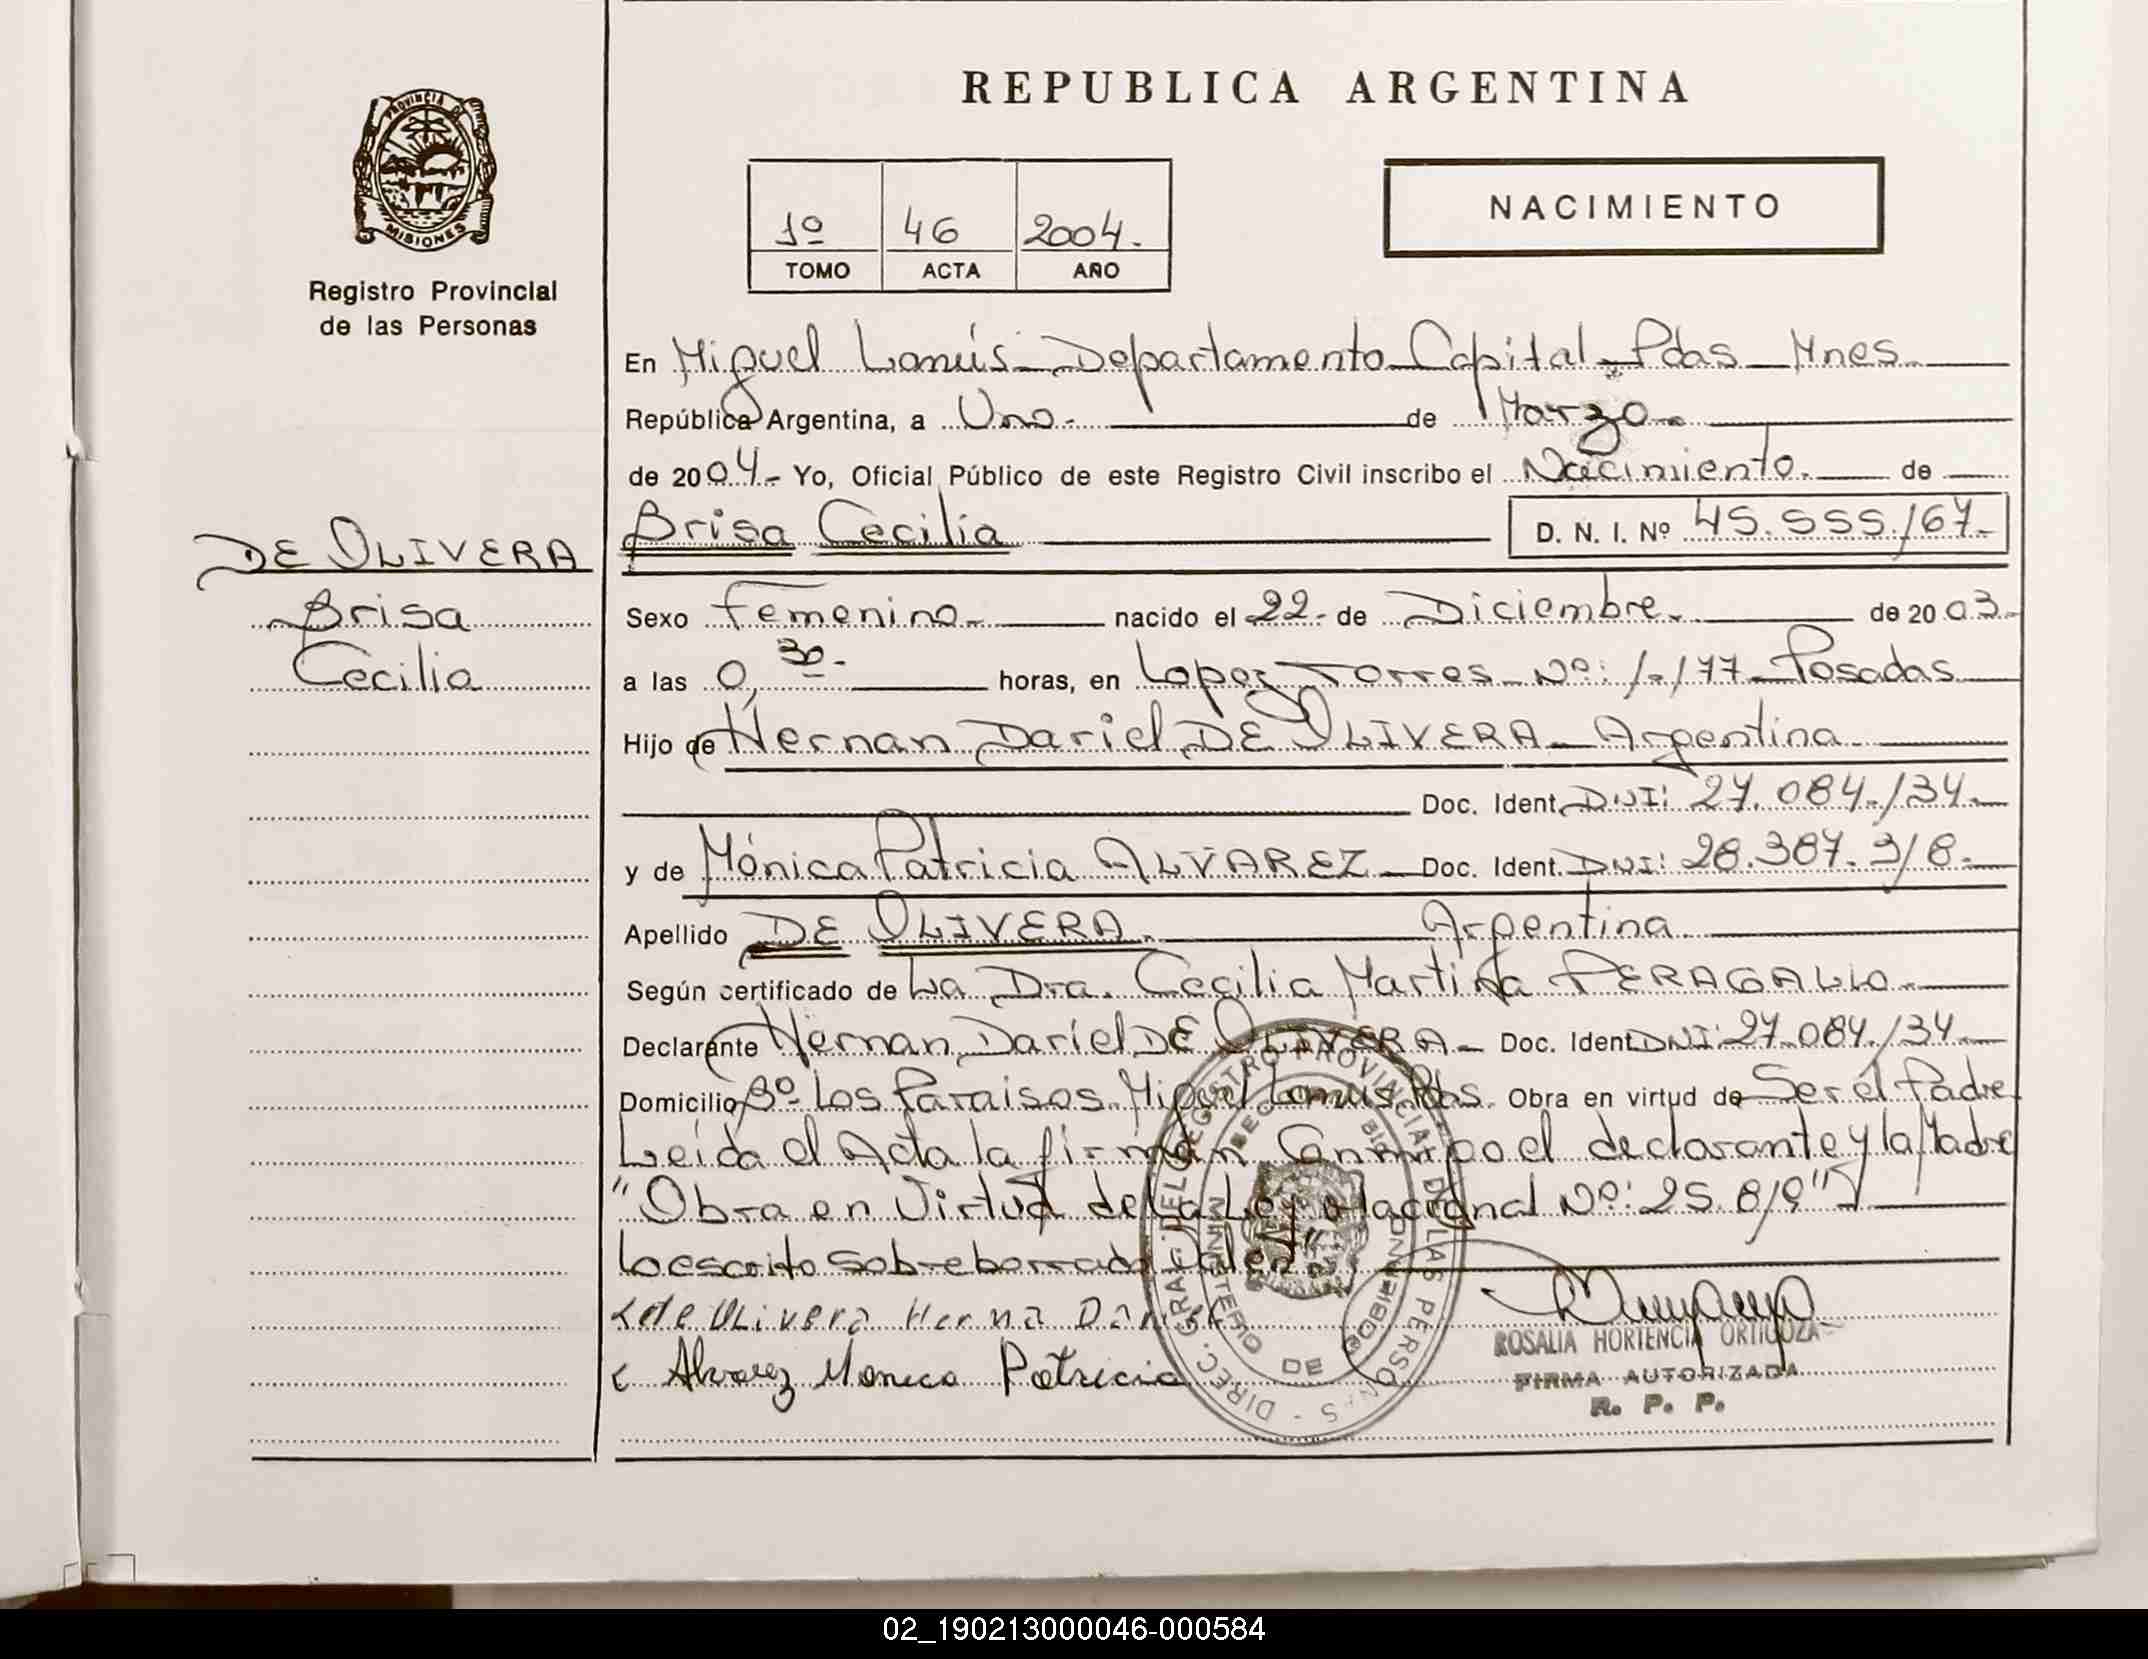 PROVINCIA DE
MISIONES
Registro Provincial
de las Personas
DE OLIVERA
Brisa
Cecilia
REPUBLICA ARGENTINA
1º 46 2004.
TOMO ACTA AÑO
NACIMIENTO
En Miguel Lanús - Departamento Capital - Pdas - Mnes.
República Argentina, a Uno.- de Marzo.
de 2004.- Yo, Oficial Público de este Registro Civil inscribo el Nacimiento. de
Brisa Cecilia D. N. I. Nº 45.555.167.-
Sexo Femenino.- nacido el 22.- de Diciembre. de 2003.-
a las 0,30.- horas, en Lopez Torres - Nº: 1.177 - Posadas
Hijo de Hernan Dariel DE OLIVERA - Argentina
Doc. Ident. DNI: 27.084.134.-
y de Mónica Patricia ALVAREZ - Doc. Ident. DNI: 28.387.318.-
Apellido DE OLIVERA. Argentina
Según certificado de La Dra. Cecilia Martina PERAGALLO.
Declarante Hernan Dariel DE OLIVERA - Doc. Ident. DNI: 27.084.134.-
Domicilio Bº Los Paraisos. Miguel Lanus Pdas. Obra en virtud de Ser él Padre
Leida el Acta la firman Conmigo el declarante y la Madre
"Obra en Virtud de La Ley Nacional Nº: 25.819"
Lo escrito sobreborrado Valen".
de OLivera Herna Dariel
Alvarez Monica Patricia
ROSALIA HORTENCIA ORTIGOZA
FIRMA AUTORIZADA
R. P. P.
DIREC. GRAL. DEL REGISTRO PROVINCIAL DE LAS PERSONAS
MINISTERIO DE GOBIERNO
02_190213000046-000584